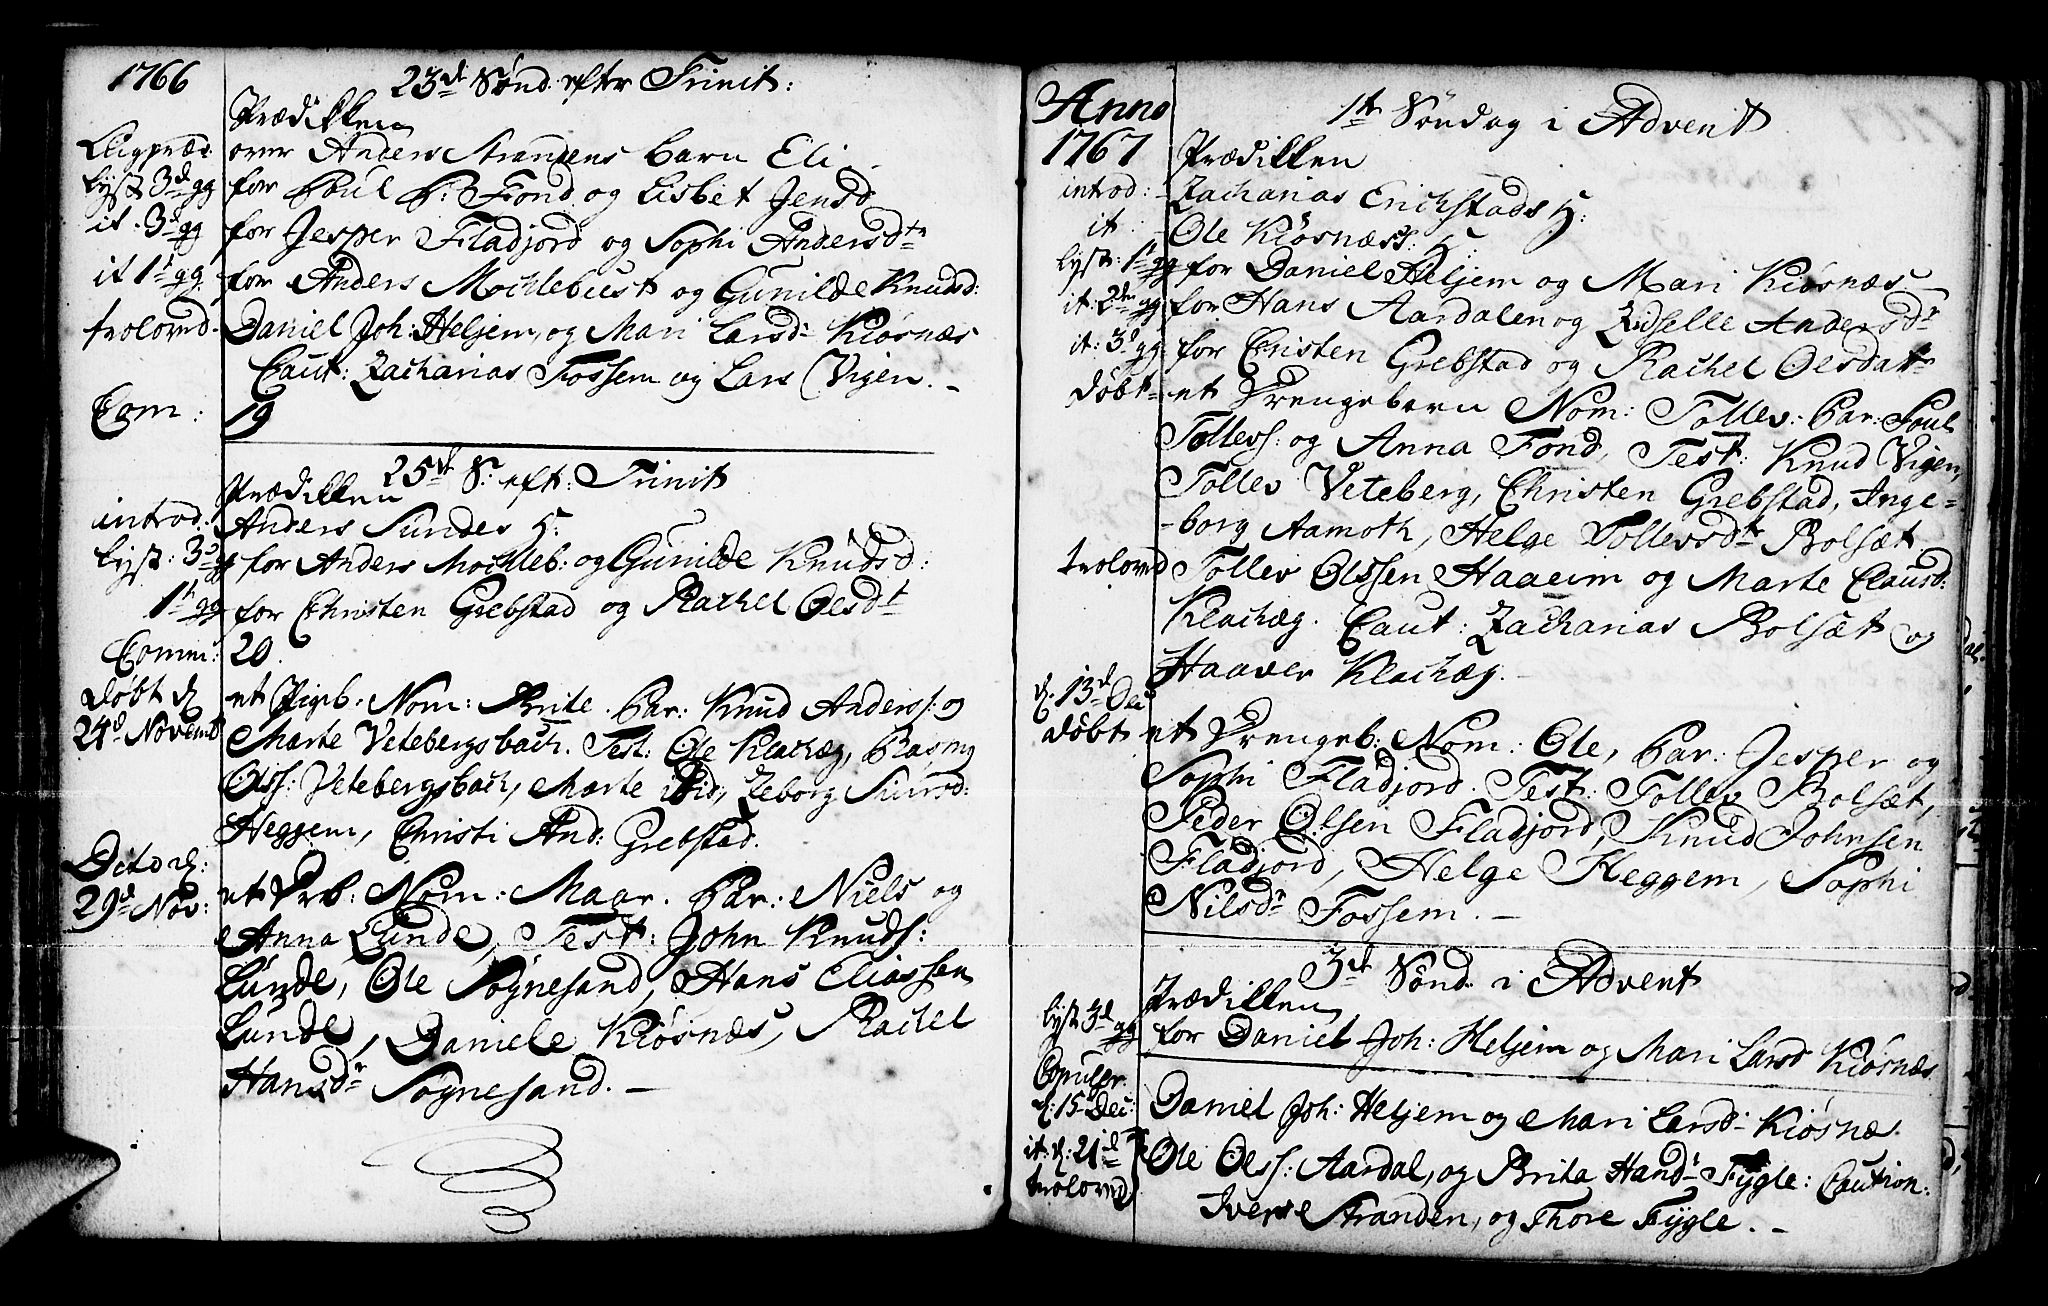 1766
23de Sønd. eftr Trinit:
Prædikken
Liigpræd. over Anders Strandens barn Eli. -
lyst 3de gg for Poul P: Fond og Lisbet Jensd
it. 3de gg for Jesper Fladjord og Sophi Andersdtr
it 1te gg. for Anders Mochlebust og Gunilde Knudsd:
troloved. Daniel Joh: Heljem, og Mari Larsd: Kiøsnæs
Caut: Zacharias Fossem og Lars Vigen. -
Com: 19
25de S: eft: Trinit
Prædikken
introd: Anders Sundes H:
lyst: 3de gg for Anders Mochleb: og Gunilde Knudsd:
1te gg for Christen Grebstad og Rachel Olsdt
Comm: 20.
døbt d. et Pigeb. Nom: Brite. Par: Knud Anderss: og
24de Novemb Marte Vetebergsbach. Test: Ole Klachæg, Rasmg
Olss: Vetebergsbach, Marte ibid, Zeborg Siursd:
Heggem, Christi And: Grebstad.
Dito d.
29de Nov: et Drb: Nom: Maar. Par: Niels og
Anna Lunde, Test: John Knuds:
Lunde, Ole Søgnesand, Hans Eliassen
Lunde, Daniele Kiøsnæs, Rachel
Hansdr Søgnesand. -
Anno
1767
1te Søndag i Advent
Prædikken
introd: Zacharias Erichstads H:
it. Ole Kiøsnæs: H:
lyst: 1te gg for Daniel Heljem og Mari Kiøsnæs.
it: 2den gg. for Hans Aardalen og Zidselle Andersdr
it: 3de gg. for Christen Grebstad og Rachel Olsdatr
døbt et Drengebarn Nom: Tollev: Par: Poul
Tollevs: og Anna Fond, Test: Knud Vigen,
Tollev Veteberg, Christen Grebstad, Inge=
-borg Aamoth, Helge Tollevsdtr Bolsæt
troloved Tollev Olssen Haaeim og Marte Clausd:
Klachæg. Caut: Zacharias Bolsæt og
Haaver Klachæg. -
d. 13de Dec
døbt et Drengeb: Nom: Ole, Par: Jesper og
Sophi Fladjord. Test: Tollev Bolsæt,
Peder Olsen Fladjord, Knud Johnsen
Fladjord, Helge Heggem, Sophi
Nilsdr Fossem. -
3de Sønd. i Advent
Prædikken
lyst 3de gg for Daniel Joh: Heljem og Mari Larsd Kiøsnæs
Copuler.
d: 15 Dec: Daniel Joh: Heljem og Mari Larsd: Kiøsnæ.
it: d: 21de
troloved Ole Olss: Aardal, og Brita Hansdr Fygle: Caution:
Iver Stranden, og Thore Fygle. -